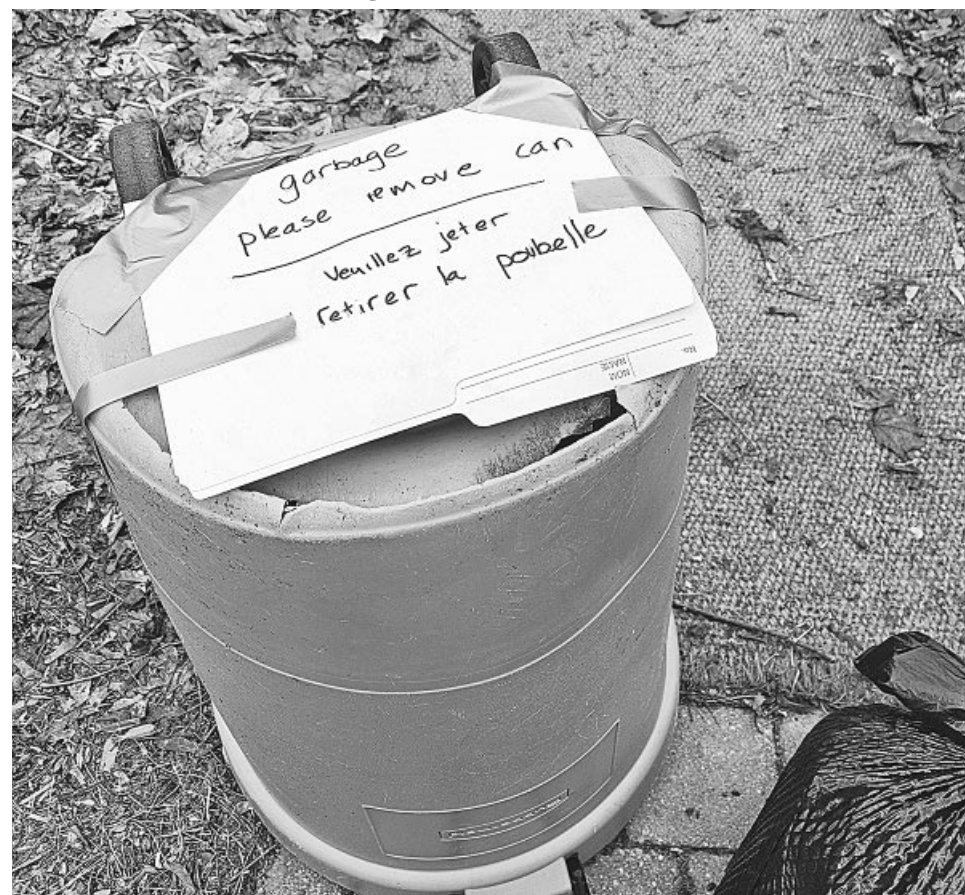 garbage
please remove can
Veuillez jeter
retirer la poubelle
No.
NOM
NAME